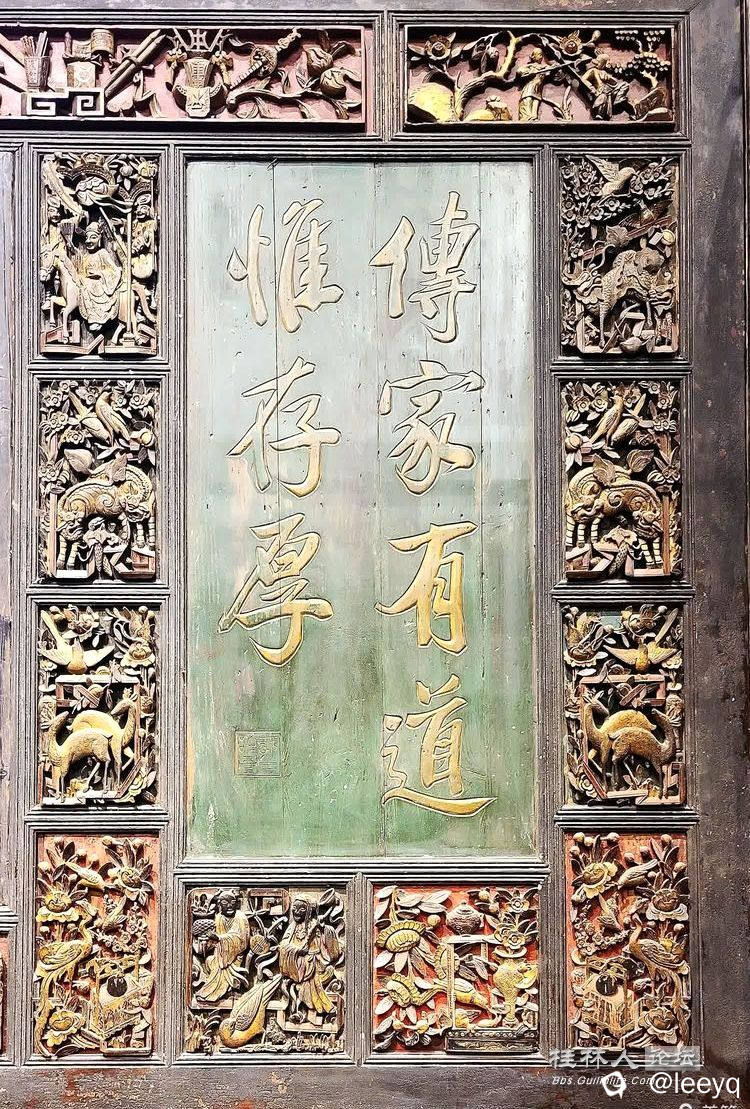 傳家有道
惟存厚
桂林人论坛
Bbs.Guilinlife.Com
@leeyq